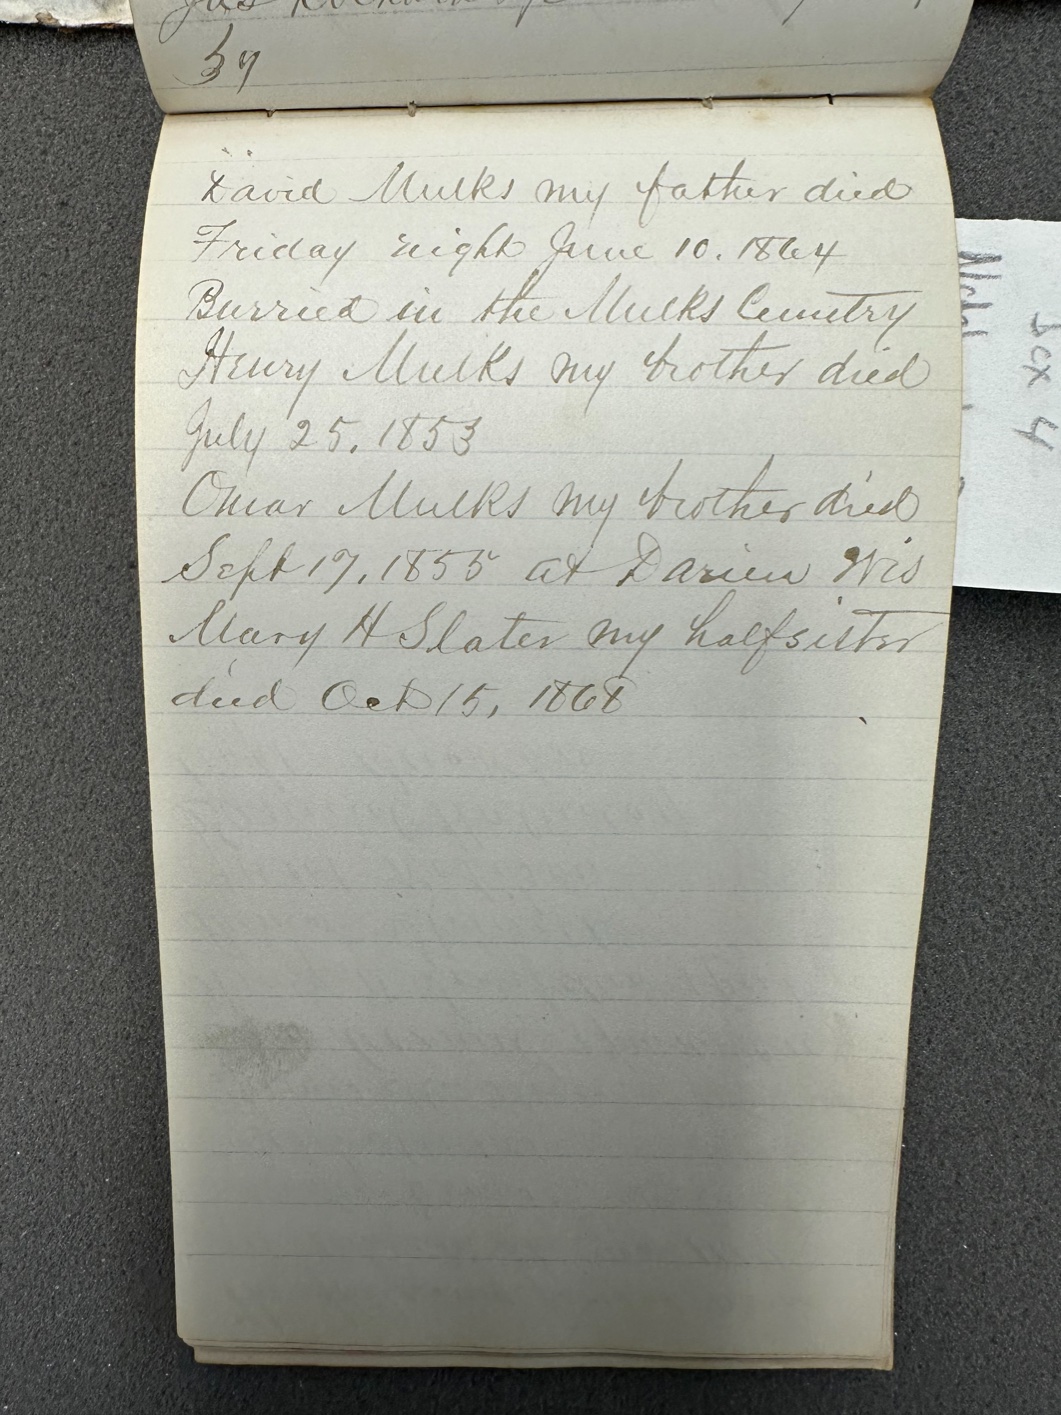 37
David Mulks my father died
Friday night June 10. 1864
Burried in the Mulks Cemetry
Henry Mulks my brother died
July 25. 1853
Omar Mulks my brother died
Sept 17, 1855 at Darien Wis
Mary H Slater my halfsister
died Oct 15, 1868
Box 4